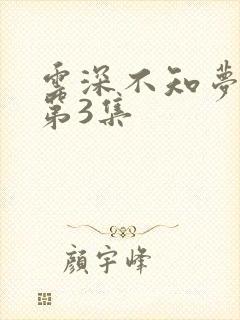 雲深不知夢
第3集
顏宇峰